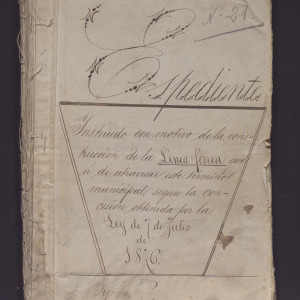 Nº 21
Espediente
Instruido con motivo de la cons-
truccion de la Linea férea que
a de atravesar este termino
municipal, segun la con-
cesion obtenida por la
Ley de 7 de Julio
de
1876.